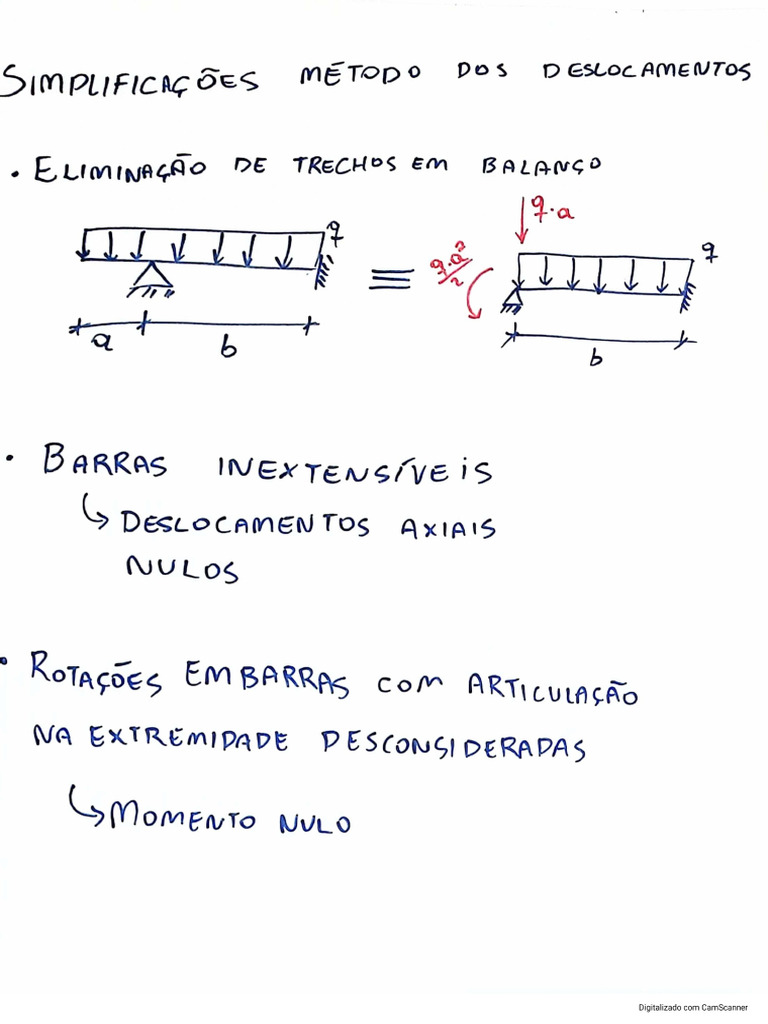 SIMPLIFICAÇÕES MÉTODO DOS DESLOCAMENTOS
• ELIMINAÇÃO DE TRECHOS EM BALANÇO
q
q·a
q·a²/2
q
a
b
≡
b
• BARRAS INEXTENSÍVEIS
↳ DESLOCAMENTOS AXIAIS
NULOS
• ROTAÇÕES EM BARRAS COM ARTICULAÇÃO
NA EXTREMIDADE DESCONSIDERADAS
↳ MOMENTO NULO
Digitalizado com CamScanner